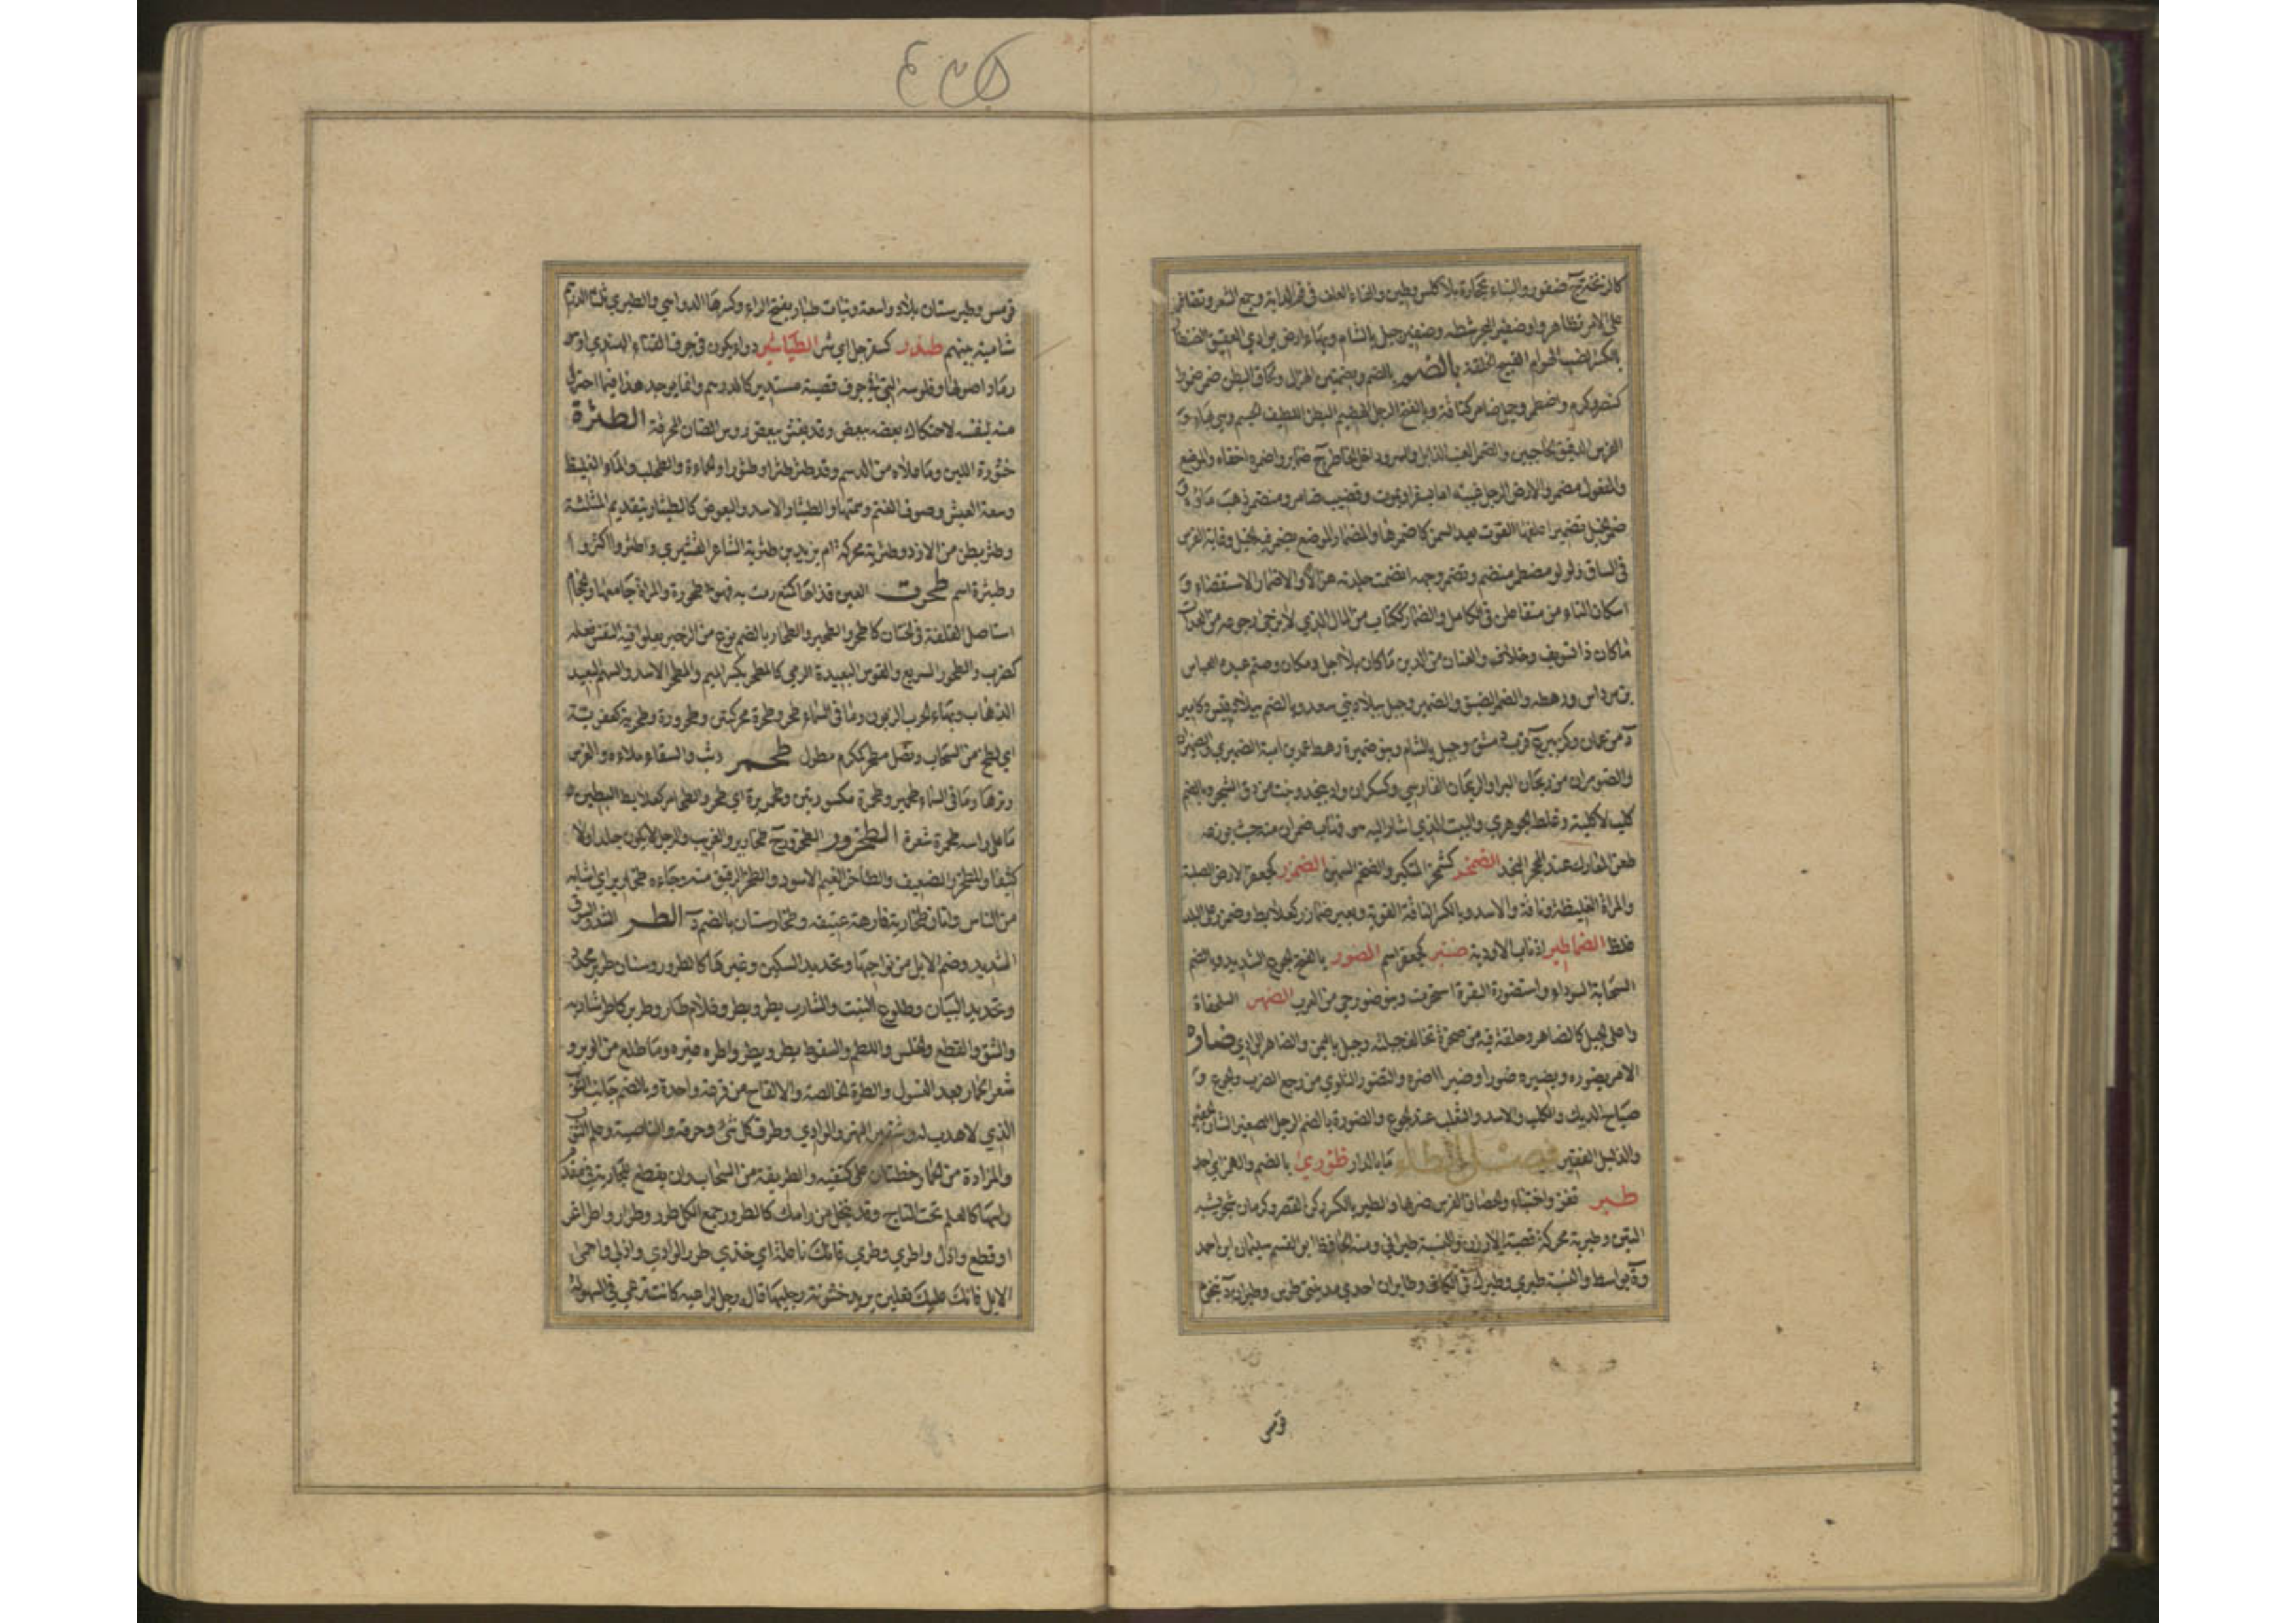 كالزنخترج ضفور والبناء بحجارة بلا كلس وطين والقاء العلف في فم الدابة وجمع الشعر وتضافروا
على الامر تظاهروا وضفير البحر شطه وضفير جبل بالشام وبهاء ارض بوادي العقيق
بالكسر الضب الهرم القبيح الخلقة الضمر بالضم وبضمتين الهزال ولحاق البطن ضمر ضمورا
كنصر وكرم واضطمر وجمل ضامر كناقة وبالفتح الرجل الهضيم البطن اللطيف الجسم وهي بهاء و
الفرس الدقيق الحاجبين والضمير العنب الذابل والسر وداخل الخاطر ج ضماير واضمره اخفاه والموضع
والمفعول مضمر والارض الرجل غيبته اما بسفر او بموت وقضيب ضامر ومنضمر ذهب ماؤه
ضمر الخيل تضميرا علفها القوت بعد السمن كاضمرها والمضمار الموضع يضمر فيه الخيل وغاية الفرس
في السباق ولولو مضطمر منضم وتضمر وجهه انضمت جلدته هزالا والاضمار الاستقصاء و
اسكان التاء من متفاعلن في الكامل والضمار ككتاب من المال الذي لا يرجى رجوعه ومن العدات
ما كان ذا تسويف وخلاف والعنان ومن الدين ما كان بلا اجل ومكان وصنم عبده العباس
بن مرداس ورهطه والضمر الضيق والضمير وجبل ببلاد بني سعد وبالضم ببلاد قيس وكامير
د من عمان وكزبير ع قرب دمشق وجبل بالشام وبنو ضميرة رهط عمرو بن امية الضميري والضميران
والضومران من ريحان البر او الريحان الفارسي وكسكران واد بنجد ونبت من دق الشجر وبالضم
كلب لا كلبة وغلط الجوهري والبيت الذي اشار اليه فهاب ضمران منه حيث يوزعه
طعن المعارك عند المحجر النجد الضمخر كشمخر المتكبر والضخم السمين الضمزر كجعفر الارض الصلبة
والمراة الغليظة وناقة والاسد وبالكسر الناقة القوية وبعير ضمازر كعلابط وضمزر على البلد
غلظ الضماطير اذناب الاودية ضنبر كجعفر اسم الضور بالفتح الجوع الشديد وبالضم
السحابة السوداء واستضورت البقرة استحرمت وبنو ضور حي من العرب الضهر السلحفاة
واعلى الجبل كالضاهر وحلقة فيه من صخرة تخالف جبلته وجبل باليمن والضاهر الوادي ضاره
الامر يضوره ويضيره ضورا وضيرا اضره والتضور التلوي من وجع الضرب والجوع و
صياح الديك والكلب والاسد والثعلب عند الجوع والضورة بالضم الرجل الصغير الشان الحقير
والذليل الفقير فصل الطاء ما بالدار طؤري بالضم والهمز اي احد
طبر قفز واختباء والحصان الفرس ضربها والطبر بالكسر ركن القصر وكرمان شجر يشبه
التين وطبرية محركة قصبة الاردن والنسبة طبراني ومنه الحافظ ابو القسم سليمان ابن احمد
وة بواسط والنسبة طبري وطبرك في الكاف وطابران احدى مدينتي طوس وطبران د بتخوم
قومس
قومس وطبرستان بلاد واسعة وبنات طبار بفتح الراء وكسرها الدواهي والطبري ثلثا الدرهم
شامية بينهم طبندر كسفرجل اي شر الطباشير دواء يكون في جوف القناء الهندي او هو
رماد اصولها وفلوسه التي في جوف قصبة مستدير كالدرهم وانما يوجد هذا فيما احترق
منه بنفسه لاحتكاك بعضه ببعض وقد يغش ببعض رؤس الضان المحرقة الطثرة
خثورة اللبن وما علاه من الدسم وقد طثر طثرا وطثورا والحماءة والطحلب والماء الغليظ
وسعة العيش وصوف الغنم وسمنها والطيثار الاسد والبعوض كالطيثار بتقديم المثلثة
وطثر بطن من الازد وطثرية محركة ام يزيد بن طثرية الشاعر القشيري واطثروا اكثروا
وطيثرة اسم طحرت العين قذاها كمنع رمت به فهي طحورة والمراة جامعها والحجام
استاصل القلفة في الختان كاطحر والطحير والطحار بالضم نوع من الزحير يعلو فيه النفس فعله
كضرب والطحور السريع والقوس البعيدة الرمي كالمطحر بكسر الميم والمطحر الاسد والسهم البعيد
الذهاب وبهاء الحرب الزبون وما في السماء طحر وطحرة محركتين وطحرورة وطحرية كعفرية
اي لطخ من السحاب ونصل مطحر كمكرم مطول طحمر وثب والسقاء ملاءه والقوس
وترها وما في السماء طحمير وطحمرة مكسورتين وطحميرة اي طحر والطحامر كعلابط البطين
ما على راسه طحمرة شعرة الطخرور الطحرور ج طخارير والغريب والرجل لا يكون جلدا ولا
كثيفا والطخر الضعيف والطاخر الغيم الاسود والطخر الرقيق منه وجاءه طخارير اي اشابة
من الناس واتان طخارية فارهة عتيقة وطخارستان بالضم د الطر الشد والسوق
الشديد وضم الابل من نواحيها وتحديد السكين وغيرها كالطرور وسنان طرير محدد
وتجديد البنيان وطلوع النبت والشارب يطر ويطر وغلام طار وطرير كما طر شاربه
والشق والقطع والخلس واللطم والسقوط يطر ويطر واطره غيره وما طلع من الوبر و
شعر الحمار بعد النسول والطرة الخالصة والالقاح من قرعة واحدة وبالضم جانب الثوب
الذي لا هدب له وشفير النهر والوادي وطرف كل شئ وحرفه والناصية وعلم الثوب
والمزادة من الحمار خطتان على كتفيه والطريقة من السحاب وان يقطع للجارية في مقدم
راسها كالعلم تحت التاج وقد يتخذ من رامك كالطرور جمع الكل طرر وطرار واطر اغر
او قطع وادل واطري وطري فانك ناعلة اي خذي طرر الوادي وادلي واجمعي
الابل فانك عليك نعلين يريد خشونة رجليها قال رجل لراعية كانت ترعى في السهولة